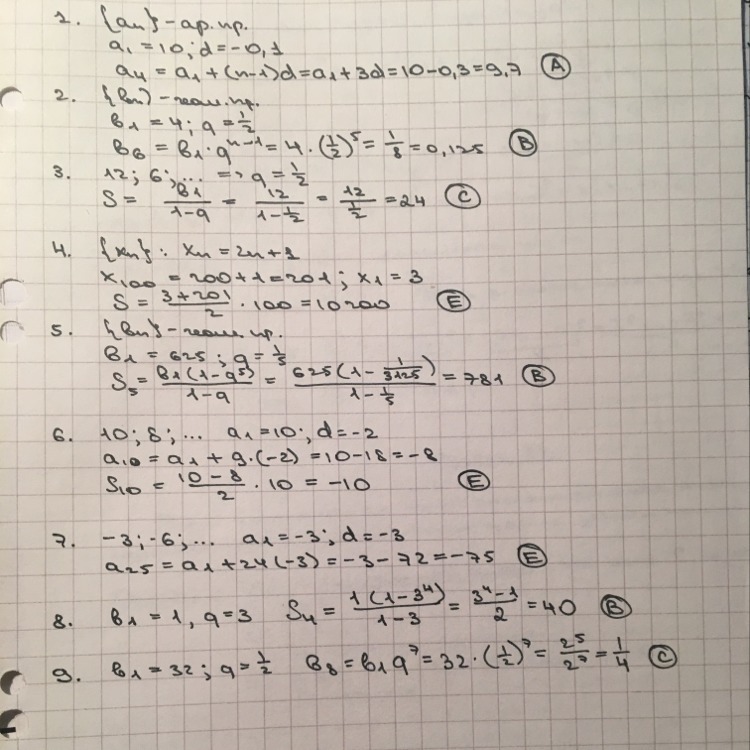 1. {an} - ар. пр.
a1 = 10; d = -0,1
a4 = a1 + (n-1)d = a1 + 3d = 10 - 0,3 = 9,7 (A)
2. {bn} - геом. пр.
b1 = 4; q = 1/2
b6 = b1 · q^(n-1) = 4 · (1/2)^5 = 1/8 = 0,125 (B)
3. 12; 6; ... => q = 1/2
S = b1/(1-q) = 12/(1-1/2) = 12/(1/2) = 24 (C)
4. {xn}: xn = 2n + 1
x100 = 200 + 1 = 201; x1 = 3
S = (3+201)/2 · 100 = 10200 (E)
5. {bn} - геом. пр.
b1 = 625; q = 1/5
S5 = b1(1-q^5)/(1-q) = 625(1 - 1/3125)/(1 - 1/5) = 781 (B)
6. 10; 8; ... a1 = 10; d = -2
a10 = a1 + 9·(-2) = 10 - 18 = -8
S10 = (10-8)/2 · 10 = -10 (E)
7. -3; -6; ... a1 = -3; d = -3
a25 = a1 + 24(-3) = -3 - 72 = -75 (E)
8. b1 = 1, q = 3 S4 = 1(1-3^4)/(1-3) = (3^4-1)/2 = 40 (B)
9. b1 = 32; q = 1/2 b8 = b1q^7 = 32 · (1/2)^7 = 2^5/2^7 = 1/4 (C)